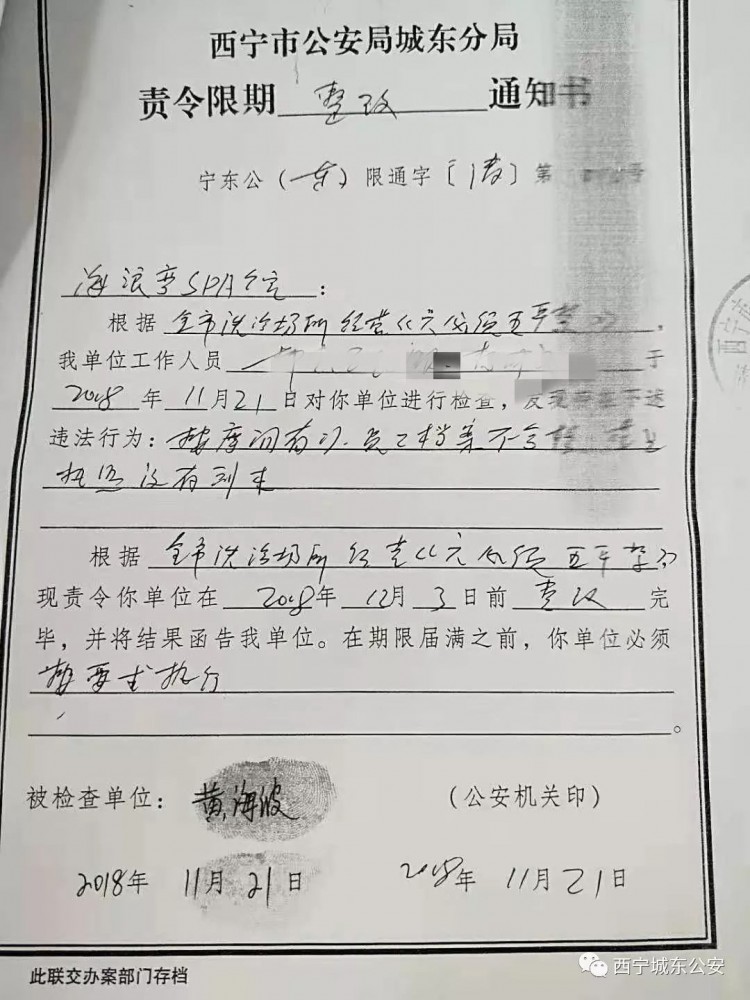 西宁市公安局城东分局
责令限期 整改 通知书
宁东公（东）限通字〔清〕第 号
海浪湾SPA会馆：
根据 全市洗浴场所经营 必须五严禁
我单位工作人员 于
2018 年 11月21 日对你单位进行检查，发现 下述
违法行为：按摩间有门.员工档案不全
执照没有到来
根据 全市洗浴场所经营 必须五严禁
现责令你单位在 2018年 12月 3 日前 整改 完
毕，并将结果函告我单位。在期限届满之前，你单位必须
按要求执行
。
被检查单位：黄海波 （公安机关印）
2018年 11月21日 2018年 11月21日
此联交办案部门存档
西宁城东公安